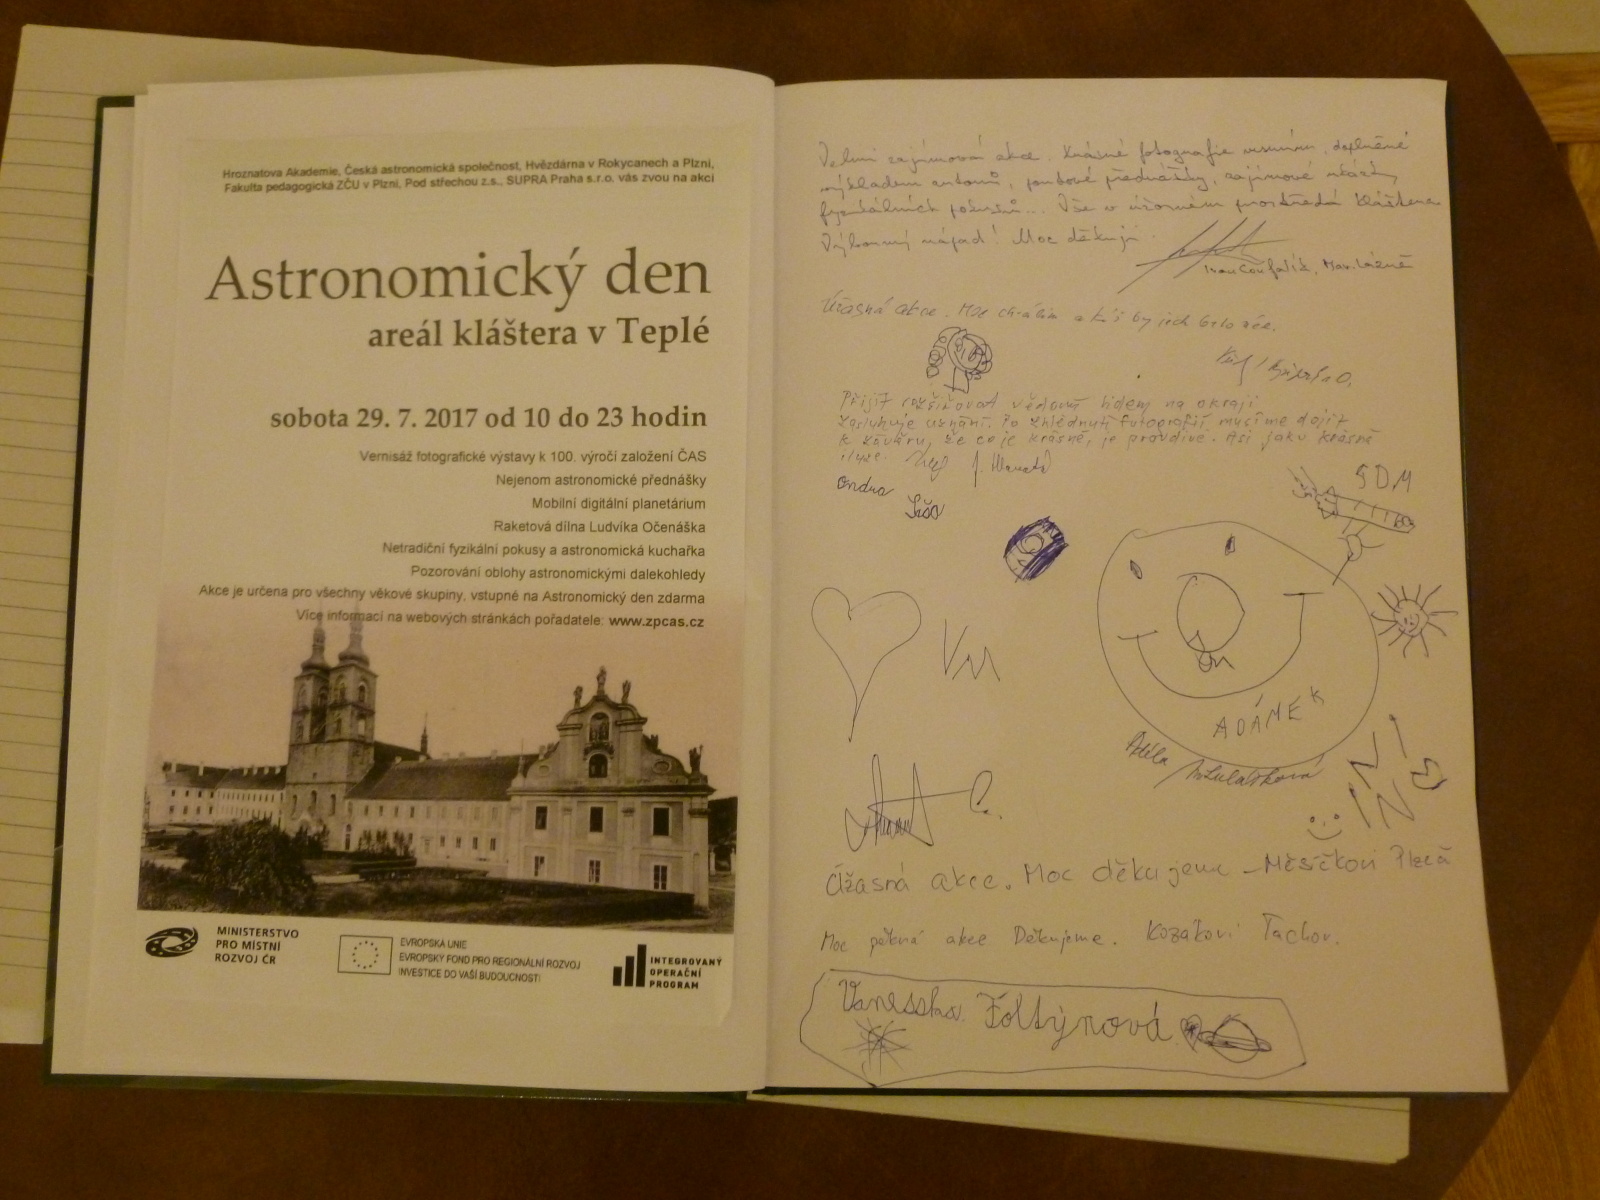 Hroznatova Akademie, Česká astronomická společnost, Hvězdárna v Rokycanech a Plzni,
Fakulta pedagogická ZČU v Plzni, Pod střechou z.s., SUPRA Praha s.r.o. vás zvou na akci
Astronomický den
areál kláštera v Teplé
sobota 29. 7. 2017 od 10 do 23 hodin
Vernisáž fotografické výstavy k 100. výročí založení ČAS
Nejenom astronomické přednášky
Mobilní digitální planetárium
Raketová dílna Ludvíka Očenáška
Netradiční fyzikální pokusy a astronomická kuchařka
Pozorování oblohy astronomickými dalekohledy
Akce je určena pro všechny věkové skupiny, vstupné na Astronomický den zdarma
Více informací na webových stránkách pořadatele: www.zpcas.cz
MINISTERSTVO
PRO MÍSTNÍ
ROZVOJ ČR
EVROPSKÁ UNIE
EVROPSKÝ FOND PRO REGIONÁLNÍ ROZVOJ
INVESTICE DO VAŠÍ BUDOUCNOSTI
INTEGROVANÝ
OPERAČNÍ
PROGRAM
Velmi zajímavá akce. Krásné fotografie vesmíru, doplněné
výkladem autorů, poutavé přednášky, zajímavé ukázky
fyzikálních pokusů... Vše v úžasném prostředí kláštera.
Výborný nápad! Moc děkuji.
Ivan Coufalík, Mar. Lázně
Úžasná akce. Moc chválím a kéž by jich bylo více.
Přijít rozšiřovat vědomí lidem na okraji
zasluhuje uznání. Po zhlédnutí fotografií musíme dojít
k závěru, že co je krásné, je pravdivé. Asi jako krásné
Ondra
SDM
ADÁMEK
Adéla Mikulášková
Úžasná akce. Moc děkujeme – Měsíčkovi Plzeň
Moc pěkná akce Děkujeme. Kozákovi Tachov.
Vanesska Foltýnová